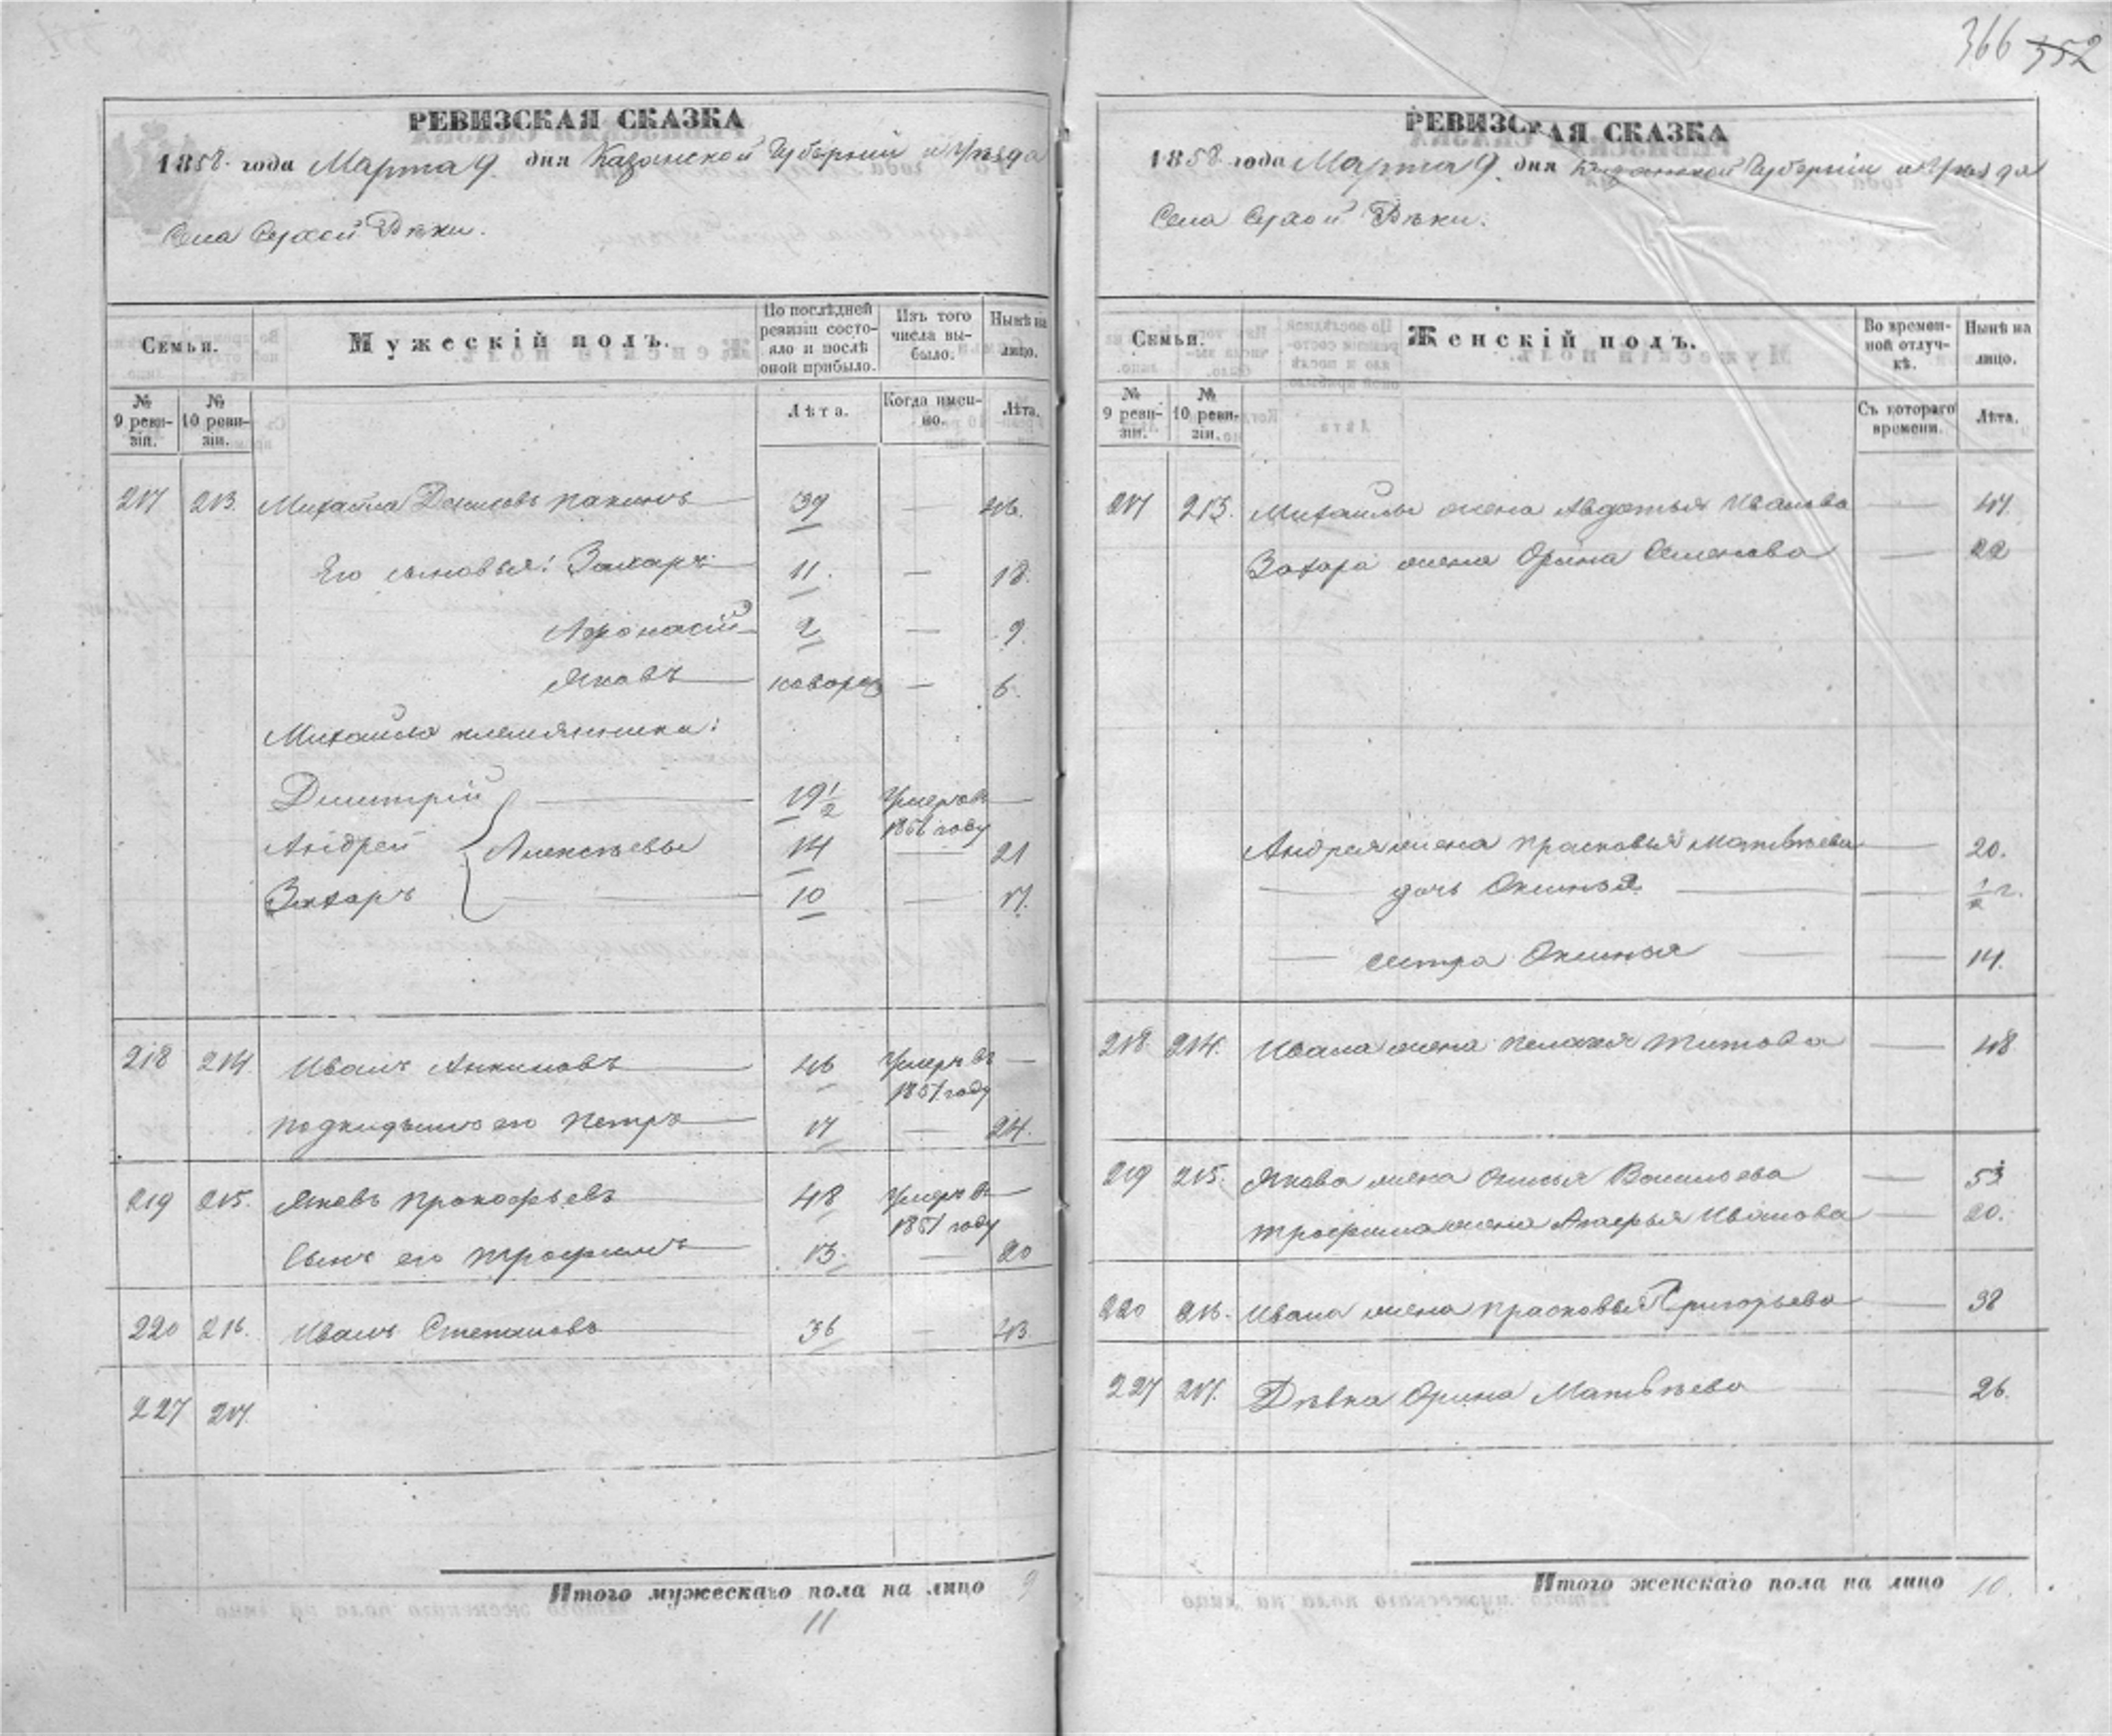 366 352
РЕВИЗСКАЯ СКАЗКА
1858 года Марта 9 дня Казанской Губерніи и Уѣзда
Села Сухой Рѣки.
Семьи.
Мужескій полъ.
По послѣдней ревизіи состояло и послѣ оной прибыло.
Изъ того числа выбыло.
Нынѣ на лицо.
№ 9 ревизіи.
№ 10 ревизіи.
Лѣта.
Когда именно.
Лѣта.
217 213. Михайла Денисовъ 39 — 46.
Его сыновья: Захаръ 11. — 18.
Афонасій 2 — 9.
Яковъ новорож — 6.
Михайла племянники:
Димитрій 19 1/2 Умеръ въ —
1856 году
Андрей Алексѣевы 14 — 21
Захаръ 10 — 17.
218 214. Иванъ Анкиновъ 46 Умеръ въ —
1857 году
подкидышъ его Петръ 17 — 24.
219 215. Яковъ Прокофьевъ 48 Умеръ въ —
1857 году
Сынъ его Трофимъ 13. — 20
220 216. Иванъ Степановъ 36 — 43
227 217.
Итого мужескаго пола на лицо 9
11
РЕВИЗСКАЯ СКАЗКА
1858 года Марта 9. дня Казанской Губерніи и Уѣзда
Села Сухой Рѣки.
Семьи.
Женскій полъ.
Во временной отлучкѣ.
Нынѣ на лицо.
№ 9 ревизіи.
№ 10 ревизіи.
Съ котораго времени.
Лѣта.
217 213. Михайлы жена Авдотья Иванова — 47.
Захара жена Орина Семенова — 22
Андрея жена Прасковья Матвѣева — 20.
— дочь Оксинья — 1/2 г.
— сестра Оксинья — 14.
218. 214. Ивана жена Пелагея Титова — 48
219 215. Якова жена Васильева — 53
Трофима жена Иванова — 20.
220 216. Ивана жена Прасковья Григорьева — 38
227 217. Дѣвка Орина Матвѣева — 26.
Итого женскаго пола на лицо 10.